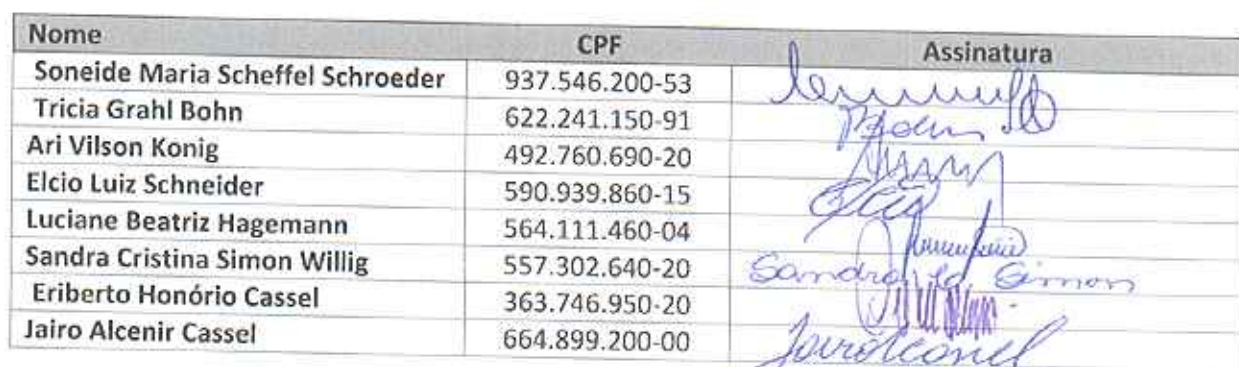 Nome CPF Assinatura
Soneide Maria Scheffel Schroeder 937.546.200-53
Tricia Grahl Bohn 622.241.150-91
Ari Vilson Konig 492.760.690-20
Elcio Luiz Schneider 590.939.860-15
Luciane Beatriz Hagemann 564.111.460-04
Sandra Cristina Simon Willig 557.302.640-20 Sandra Simon
Eriberto Honório Cassel 363.746.950-20
Jairo Alcenir Cassel 664.899.200-00